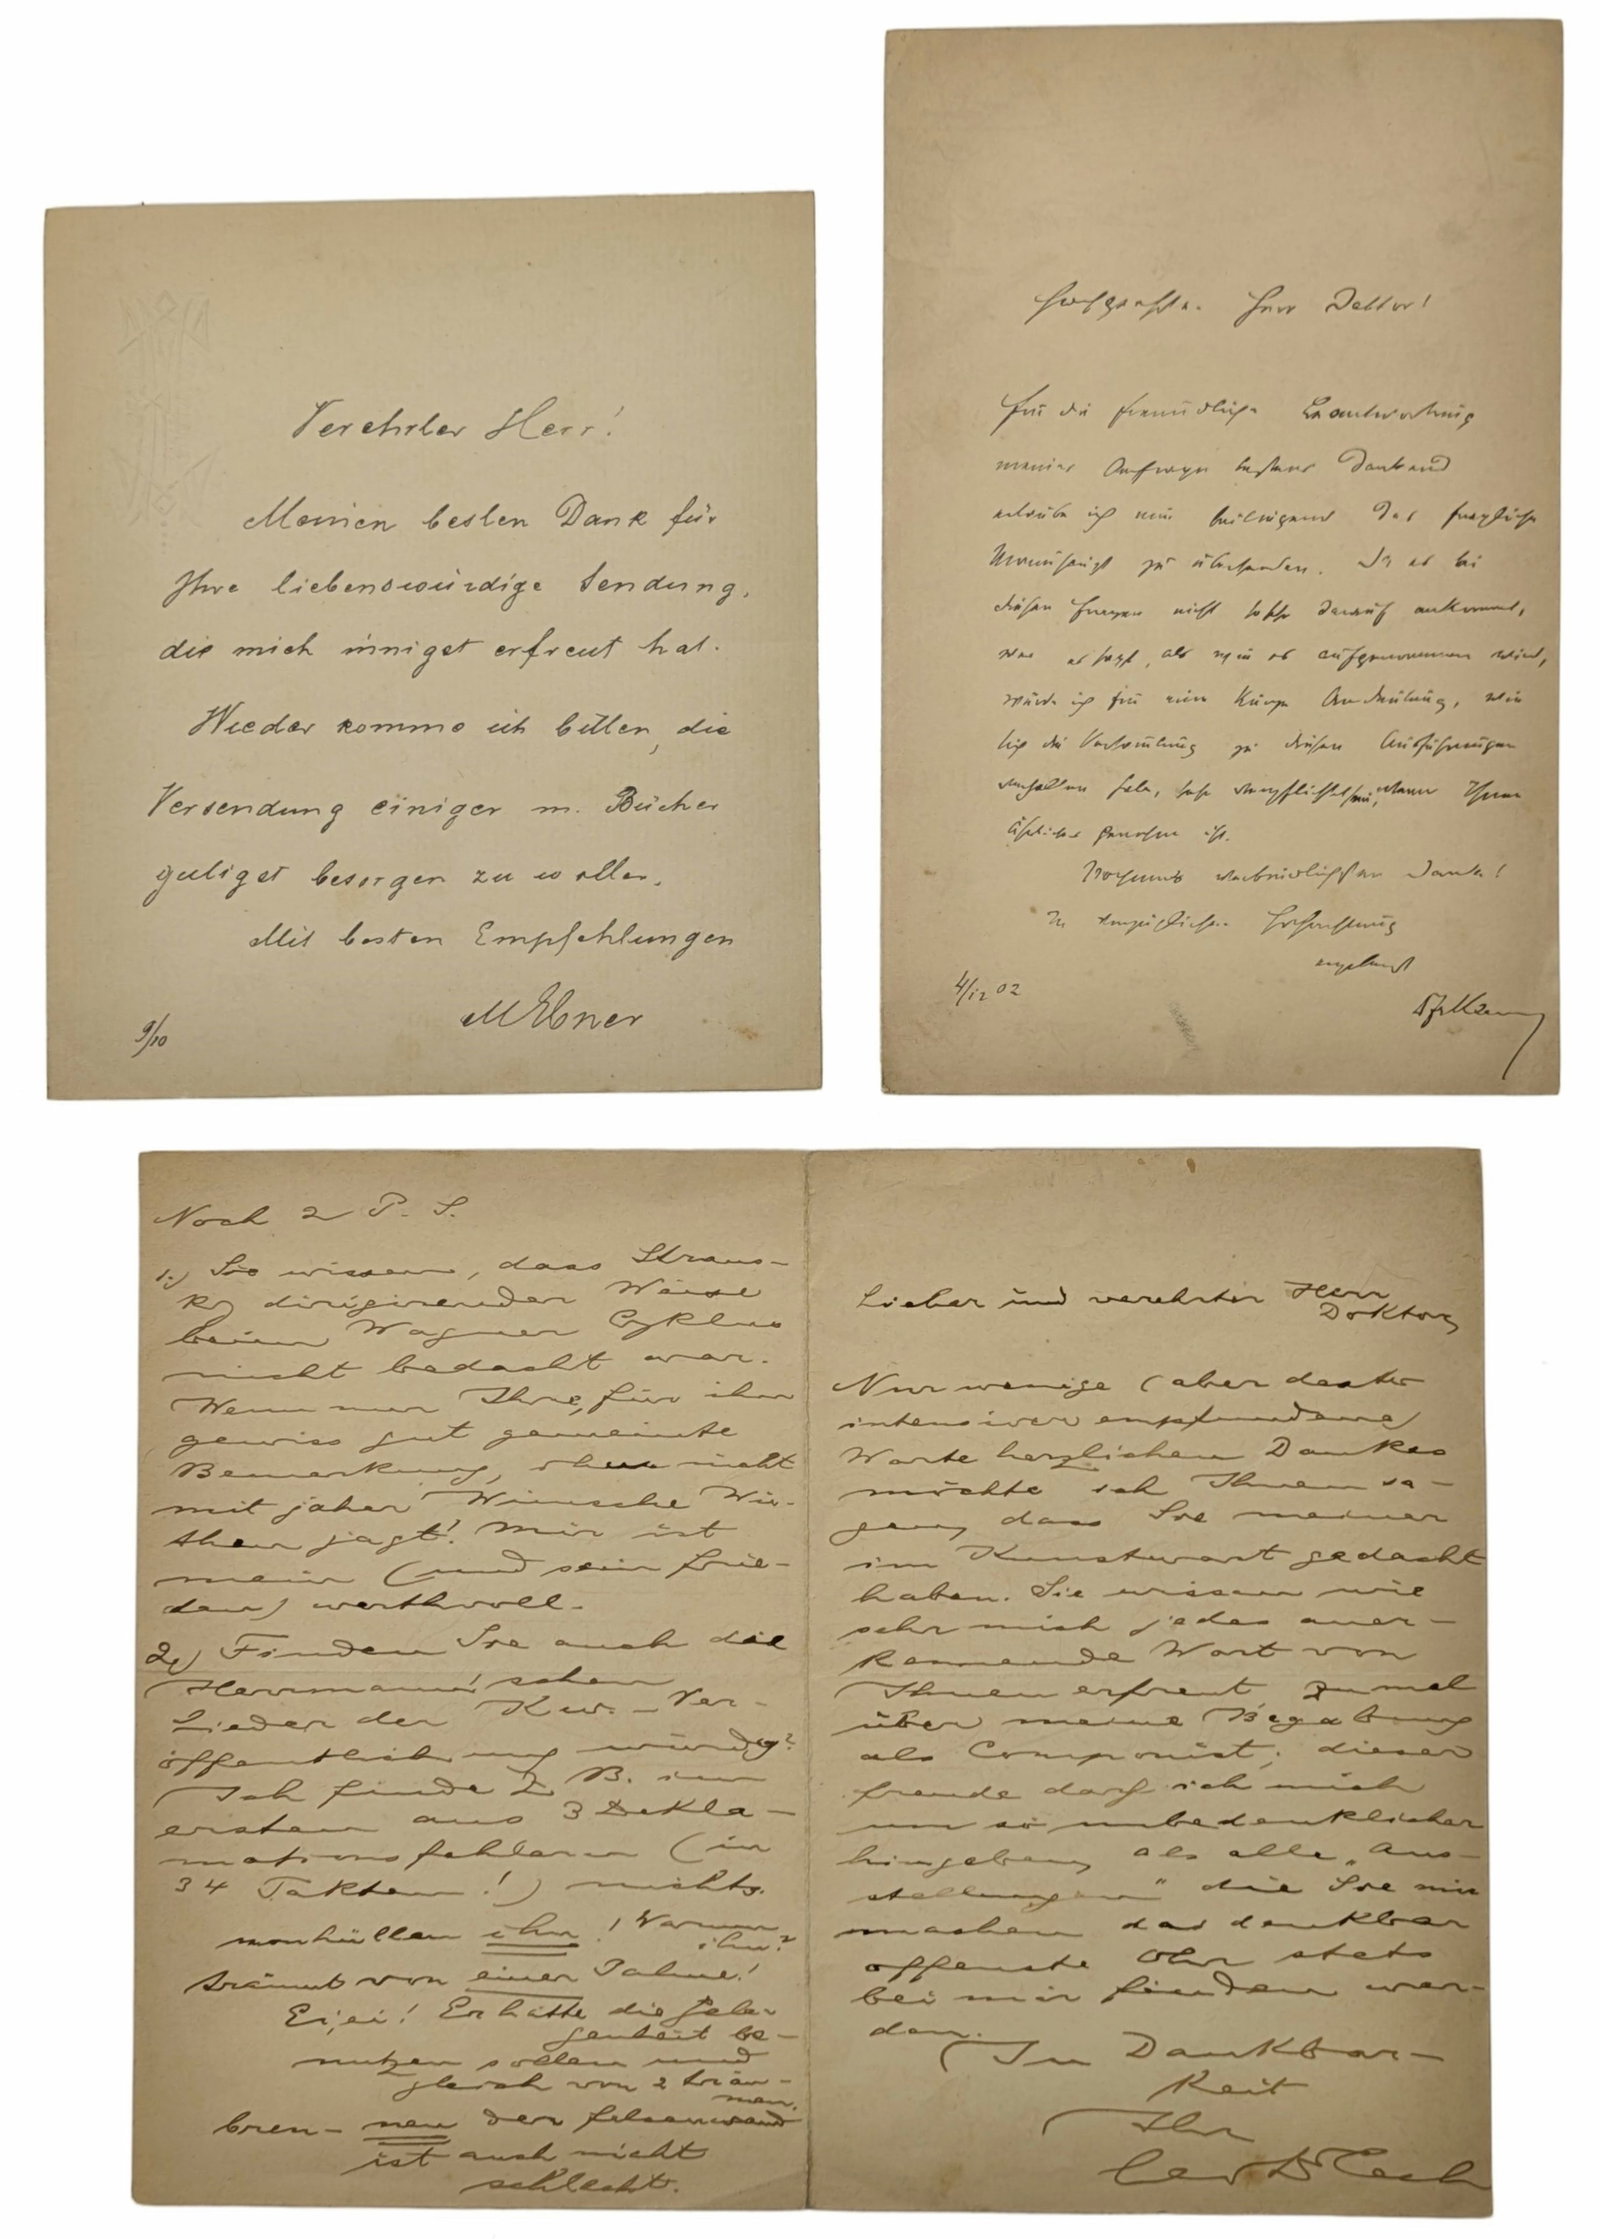 Verehrter Herr!
Meinen besten Dank für
Ihre liebenswürdige Sendung,
die mich innigst erfreut hat.
Wieder komme ich bitten, die
Versendung einiger m. Bücher
gütigst besorgen zu wollen.
Mit besten Empfehlungen
MEbner
9/10
Herr Doktor!
Für die freundliche Beantwortung
meiner Anfragen bestens dankend
erlaube ich mir beiliegend das fragliche
zu übersenden. Da es bei
diesen Fragen nicht darauf ankommt,
was er sagt, als wie es aufgenommen wird,
würde ich für eine kurze Andeutung, wie
sich die zu diesen Ausführungen
verhalten habe, sehr verpflichtet sein, wenn Ihnen
ist.
Nochmals verbindlichsten Dank!
In vorzüglicher Hochachtung
ergebenst
4/12 02
Noch 2 P. S.
1.) Sie wissen, dass Strans-
ky dirigirender Weise
beim Wagner Cyklus
nicht bedacht war.
Wenn nur Ihre, für ihn
gewiss gut gemeinte
Bemerkung, ihn nicht
mit jäher Wünsche Wü-
then jagt! Mir ist
mein (und sein Frie-
den) werthvoll.
2.) Finden Sie auch die
Herrmann'schen
Lieder der Kw. - Ver-
öffentlichung würdig?
Ich finde z. B. im
ersten aus 3 Dekla-
mationsfehlern (in
34 Takten!) nichts.
umhüllen ihn! Warum
ihn?
träumt von einer Palme!
Ei, ei! Er hätte die Gele-
genheit be-
nutzen sollen und
gleich von 2 träu-
men.
bren- nen der Felsenwand
ist auch nicht
schlecht.
Lieber und verehrter Herr
Doktor,
Nur wenige (aber desto
intensiver empfundene)
Worte herzlichen Dankes
möchte ich Ihnen sa-
gen, dass Sie meiner
im Kunstwart gedacht
haben. Sie wissen wie
sehr mich jedes aner-
kennende Wort von
Ihnen erfreut, zumal
über meine Begabung
als Componist; dieser
Freude darf ich mich
um so unbedenklicher
hingeben, als alle „Aus-
stellungen“ die Sie mir
machen das denkbar
offenste Ohr stets
bei mir finden wer-
den.
In Dankbar-
keit
Ihr
Leo Blech